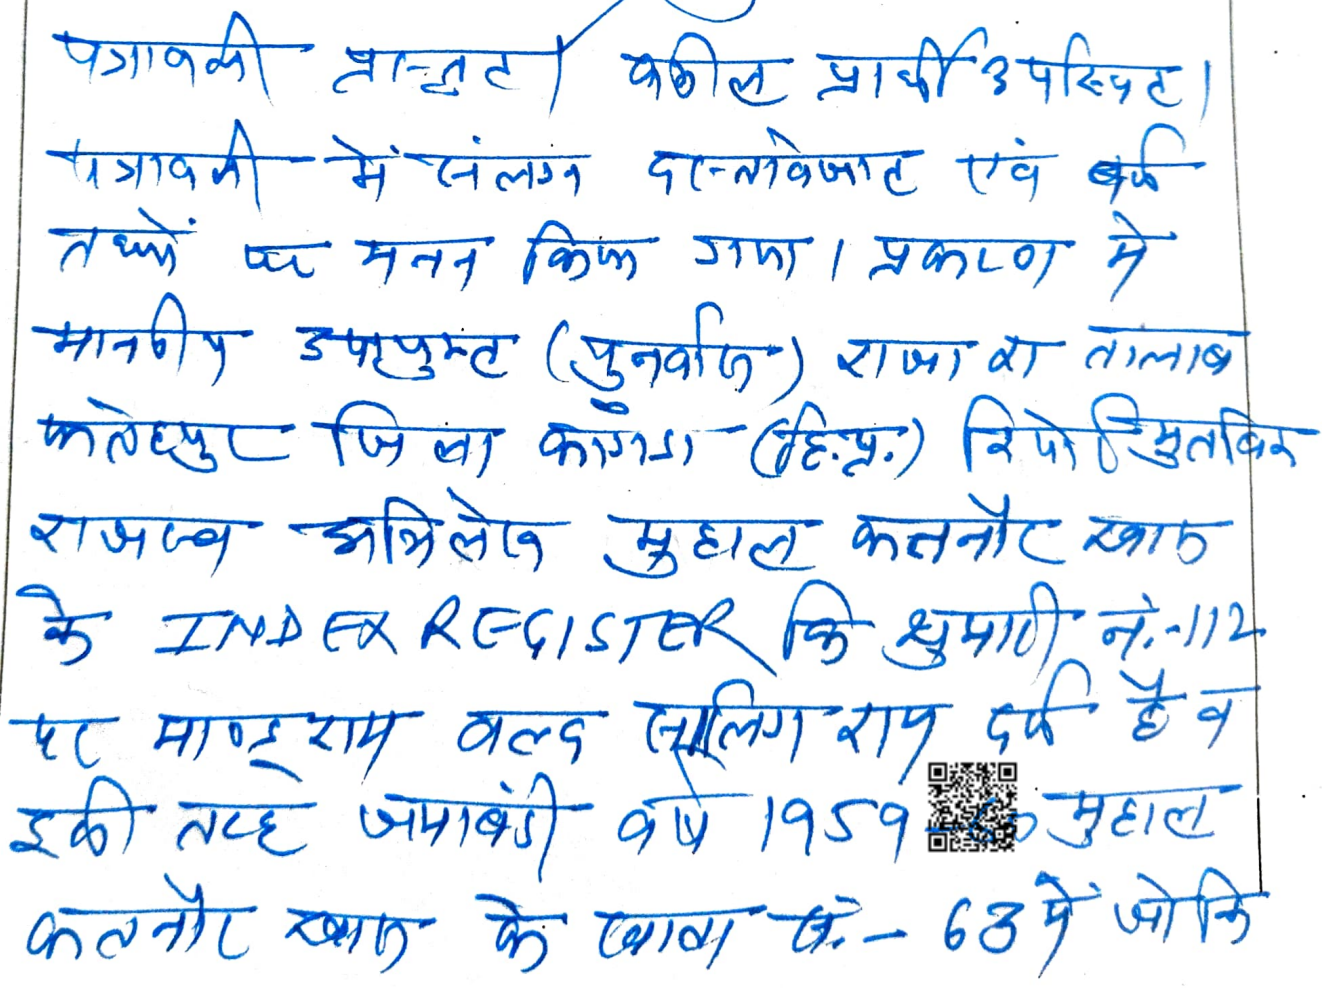 पत्रावली प्रस्तुत। वकील प्रार्थी उपस्थित।
पत्रावली में संलग्न दस्तावेजात एवं
तथ्यों पर मनन किया गया। प्रकरण में
माननीय उपायुक्त (पुनर्वास) राजा का तालाब
फतेहपुर जिला कांगडा (हि.प्र.) रिपोर्ट मुताबिक
राजस्व अभिलेख मुहाल कतनौर खास
के INDEX REGISTER कि शुमारी नं.-112
पर माण्डूराम वल्द सालिगराम दर्ज है व
इसी तरह जमाबंदी वर्ष 1959 मुहाल
कतनौर खास के खाता सं.- 63 में जो कि